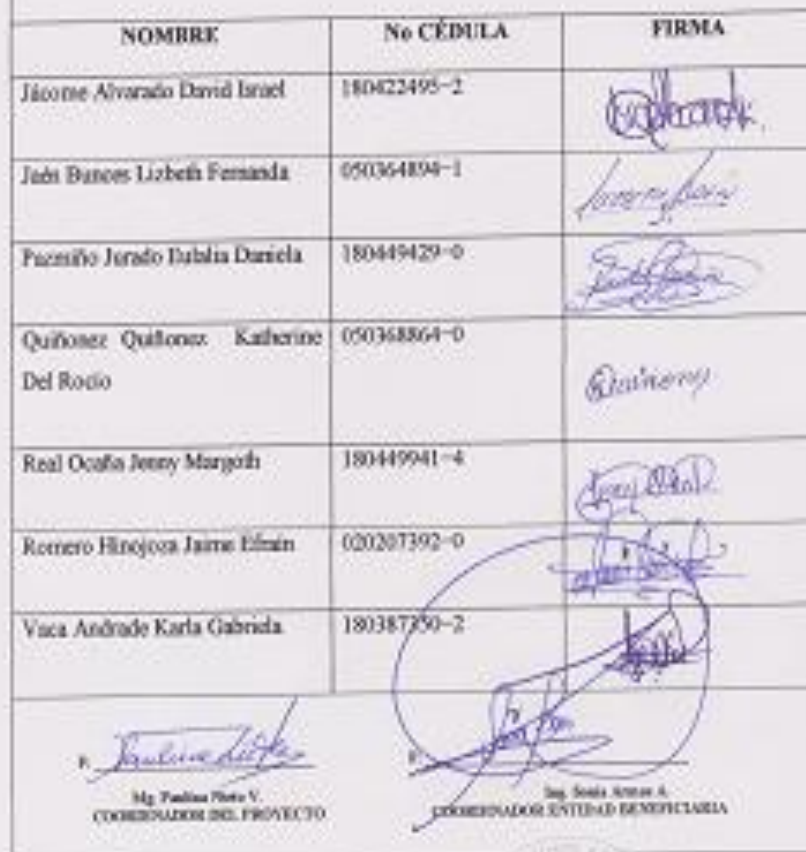 NOMBRE No CÉDULA FIRMA
Jácome Alvarado David Israel 180422495-2
Jaén Bunces Lizbeth Fernanda 050364894-1
Pazmiño Jurado Eulalia Daniela 180449429-0
Quiñonez Quiñonez Katherine 050368864-0
Del Rocío
Quiñonez
Real Ocaña Jenny Margoth 180449941-4
Romero Hinojoza Jaime Efraín 020207392-0
Vaca Andrade Karla Gabriela 180387350-2
F. F.
Mg. Paulina Nieto V. Ing. Sonia Armas A.
COORDINADOR DEL PROYECTO COORDINADOR ENTIDAD BENEFICIARIA